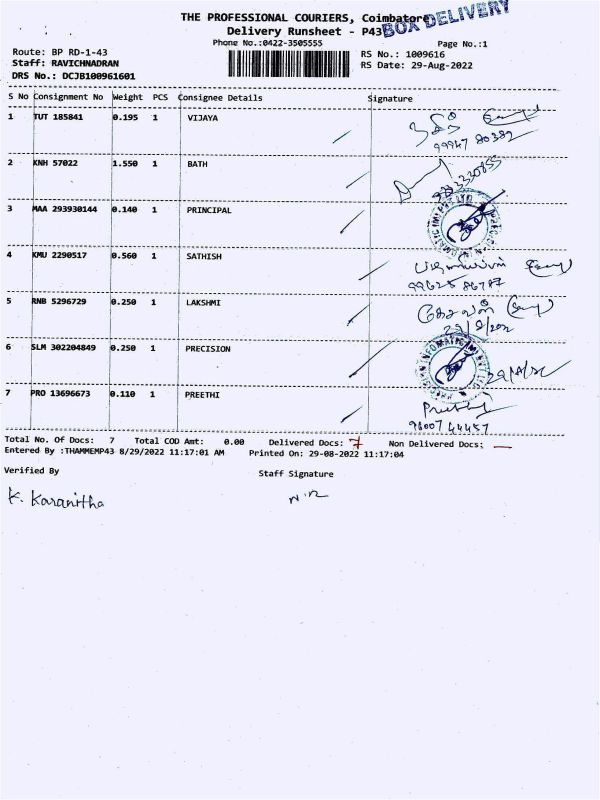 THE PROFESSIONAL COURIERS, Coimbatore
BOX DELIVERY
Delivery Runsheet - P43
Phone No.:0422-3505555
Page No.:1
Route: BP RD-1-43
RS No.: 1009616
Staff: RAVICHNADRAN
RS Date: 29-Aug-2022
DRS No.: DCJB100961601
S No Consignment No Weight PCS Consignee Details Signature
1 TUT 185841 0.195 1 VIJAYA
99947 80389
2 KNH 57022 1.550 1 BATH
3 MAA 293930144 0.140 1 PRINCIPAL
4 KMU 2290517 0.560 1 SATHISH
99625 86787
5 RNB 5296729 0.250 1 LAKSHMI
29/8/202
6 SLM 302204849 0.250 1 PRECISION
7 PRO 13696673 0.110 1 PREETHI
98007 44457
Total No. Of Docs: 7 Total COD Amt: 0.00 Delivered Docs: 7 Non Delivered Docs: —
Entered By :THAMMEMP43 8/29/2022 11:17:01 AM Printed On: 29-08-2022 11:17:04
Verified By Staff Signature
K. Karanitha